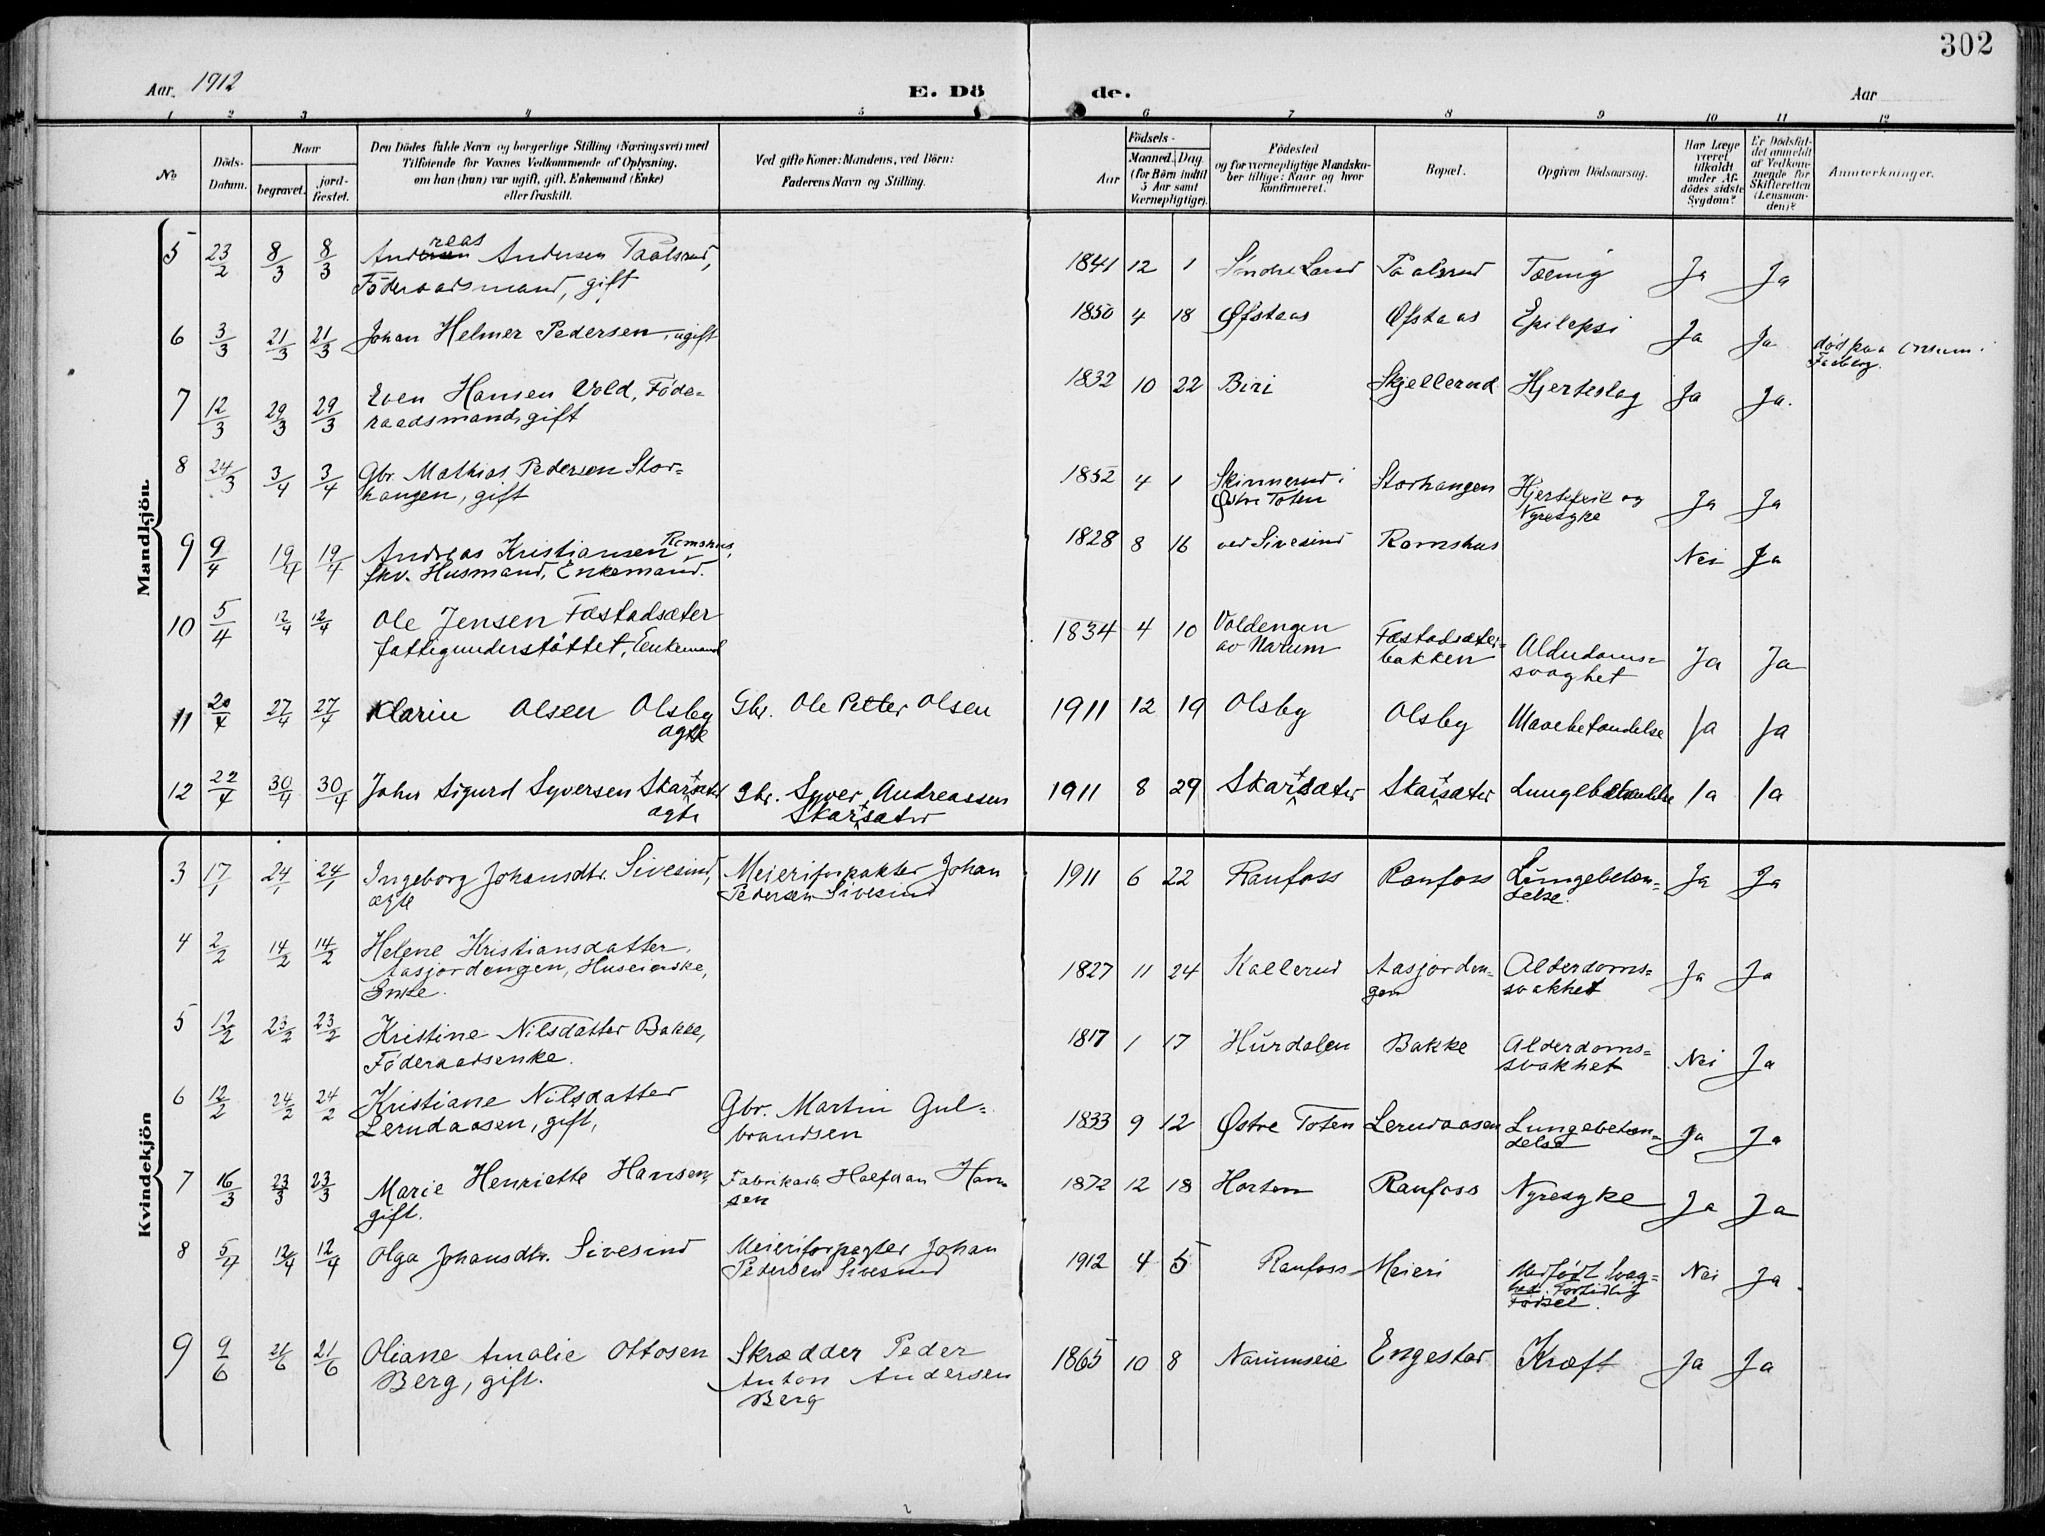 302
Aar. 1912 E. Dö de. Aar
1 2 3 4 5 6 7 8 9 10 11 12
No Döds-Datum. Naar begravet. jord-fæstet. Den Dödes fulde Navn og borgerlige Stilling (Næringsvei) med Tilföiende for Voxnes Vedkommende af Oplysning, om han (hun) var ugift, gift, Enkemand (Enke) eller fraskilt. Ved gifte Koner: Mandens, ved Börn: Faderens Navn og Stilling. Födsels- Aar Maaned. Dag (for Börn indtil 5 Aar samt Værnepligtige). Födested og for værnepligtige Mandskaber tillige: Naar og hvor konfirmeret. Bopæl. Opgiven Dödsaarsag. Har Læge været tilkaldt under Afdödes sidste Sygdom? Er Dödsfaldet anmeldt af Vedkommende for Skifteretten (Lensmanden)? Anmærkninger.
Mandkjön.
5 23/2 8/3 8/3 Andreas Andersen Paalsrud, 1841 12 1 Söndre Land Paalsrud Tæring Ja Ja
Föderaadsmand, gift
6 3/3 21/3 21/3 Johan Helmer Pedersen, ugift 1850 4 18 Øfstaas Øfstaas Epilepsi Ja Ja död paa
Faaberg.
7 12/3 29/3 29/3 Even Hansen Vold, Föde= 1832 10 22 Biri Skjellerud Hjerteslag Ja Ja.
raadsmand, gift
8 24/3 3/4 3/4 Gbr. Mathias Pedersen Stor= 1852 4 1 Skinnerud i Storhangen Hjertefeil og Ja Ja
hangen, gift Østre Toten Nyresyke
9 9/4 19/4 19/4 Andreas Kristiansen Romshus, 1828 8 16 ved Sivesind Romshus Nei Ja
fhv. Husmand, Enkemand.
10 5/4 12/4 12/4 Ole Jensen Fæstadsæter 1834 4 10 Voldengen Fæstadsæter= Alderdoms= Ja Ja
fattigunderstöttet, Enkemand av Narum bakken svaghet
11 20/4 27/4 27/4 Klarin Olsen Olsby Gbr. Ole Petter Olsen 1911 12 19 Olsby Olsby Mavebetændelse Ja Ja
ægte
12 22/4 30/4 30/4 John Sigurd Syversen Skartsæter Gbr. Syver Andreassen 1911 8 29 Skartsæter Skartsæter Lungebetændelse Ja Ja
ægte Skartsæter
Kvindekjön
3 17/1 24/1 24/1 Ingeborg Johansdtr. Sivesind, Meieriforpakter Johan 1911 6 22 Raufoss Raufoss Lungebetæn= Ja Ja
ægte Pedersen Sivesind delse.
4 2/2 14/2 14/2 Helene Kristiansdatter, 1827 11 24 Kallerud Aasjorden= Alderdoms= Ja Ja
Aasjordengen, Huseierske, gen svakhet
Enke.
5 12/2 23/2 23/2 Kristine Nilsdatter Bakke, 1817 1 17 Hurdalen Bakke Alderdoms= Nei Ja
Föderaadsenke. svakhet
6 12/2 24/2 24/2 Kristiane Nilsdatter Gbr. Martin Gul= 1833 9 12 Østre Toten Lerudaasen Lungebetæn= Ja Ja
Lerudaasen, gift, brandsen delse
7 16/3 23/3 23/3 Marie Henriette Hansen, Fabrikarb. Halfdan Han= 1872 12 18 Horten Raufoss Nyresyke Ja Ja
gift. sen
8 5/4 12/4 12/4 Olga Johansdtr. Sivesind Meieriforpagter Johan 1912 4 5 Raufoss Meieri Medfödt svag= Nei Ja
Pedersen Sivesind hed. Fortidlig
Födsel.
9 9/6 21/6 21/6 Oliane Amalie Ottosen Skrædder Peder 1865 10 8 Narumseie Engestad Kræft Ja Ja
Berg, gift. Anton Andersen
Berg